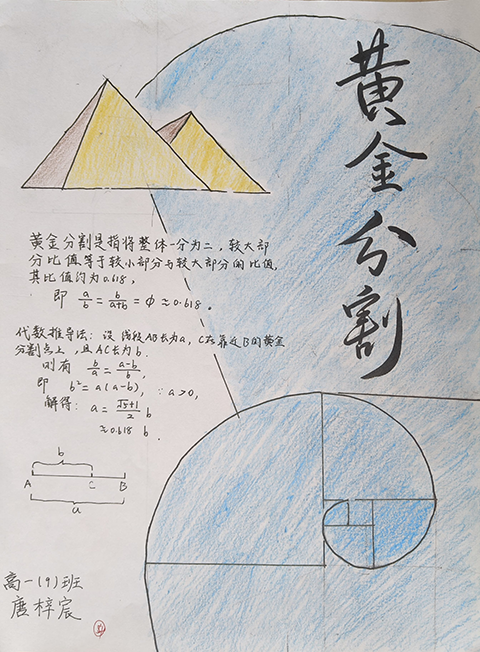 黄金分割
黄金分割是指将整体一分为二，较大部
分比值等于较小部分与较大部分间比值，
其比值约为0.618，
即 a/b = b/(a+b) = φ ≈ 0.618。
代数推导法：设线段AB长为a，C为靠近B的黄金
分割点上，且AC长为b.
则有 b/a = (a-b)/b，
即 b²=a(a-b)，∵a>0，
解得：a = (√5+1)/2 b
≈0.618 b .
b
A C B
a
高一(9)班
唐梓宸